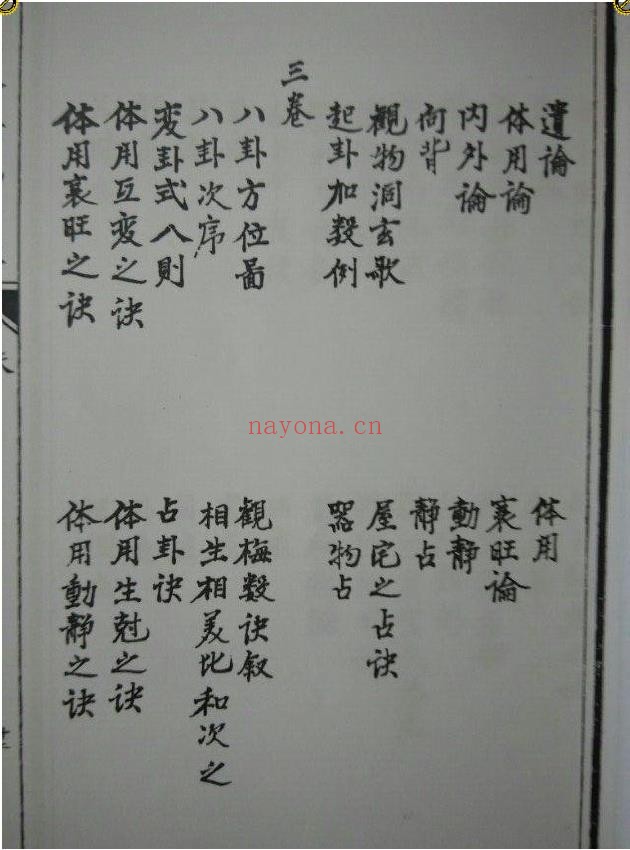 遺論
体用
体用論
衰旺論
内外論
動静
向背
静占
觀物洞玄歌
屋宅之占诀
起卦加数例
器物占
三卷
八卦方位啚
觀梅数诀叙
八卦次序
相生相克比和次之
变卦式八則
占卦诀
体用互变之诀
体用生尅之诀
体用衰旺之诀
体用動静之诀
nayona.cn